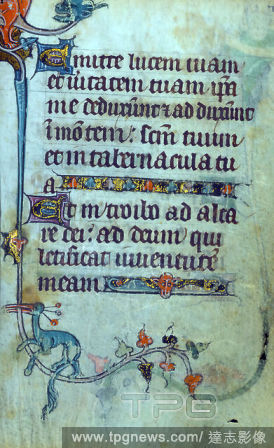 Emitte lucem tuam
et ueritatem tuam ipsa
me deduxerunt et adduxerunt
i montem: scm tuum
et in tabernacula tu
a
Et introibo ad alta
re dei: ad deum qui
letificat iuuentute
meam
TPG
www.tpgnews.com / 達志影像